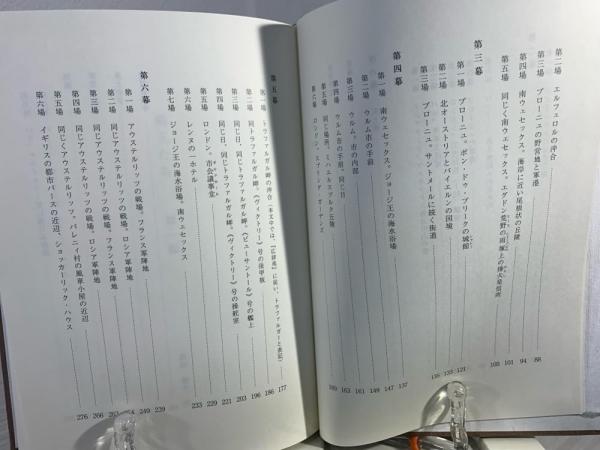 第二場 エルフェロルの沖合 88
第三場 ブローニュの野営地と軍港 94
第四場 南ウェセックス。海岸に近い尾根状の丘陵 101
第五場 同じく南ウェセックス。エグドン荒野の雨塚上の烽火見張所 108
第三幕
第一場 ブローニュ。ポン・ドゥ・ブリークの城館 121
第二場 北オーストリアとバイエルンの国境 133
第三場 ブローニュ。サントメールに続く街道 135
第四幕
第一場 南ウェセックス。ジョージ王の海水浴場 137
第二場 ウルム市の手前 147
第三場 ウルム。市の内部 149
第四場 ウルム市の手前。同じ日 161
第五場 同じ場所。ミハエルスブルク丘陵 163
第六場 ロンドン。スプリング・ガーデンズ 169
第五幕
第一場 トラファルガル岬の沖合(本文中では、『広辞苑』に従い、トラファルガーと表記) 177
第二場 同トラファルガル岬。《ヴィクトリー》号の後甲板 186
第三場 同じ日、同じトラファルガル岬。《ビューサントール》号の艦上 196
第四場 同じ日、同じトラファルガル岬。《ヴィクトリー》号の操舵室 203
第五場 ロンドン。市会議事堂 221
第六場 レンヌの一ホテル 229
第七場 ジョージ王の海水浴場。南ウェセックス 233
第六幕
第一場 アウステルリッツの戦場。フランス軍陣地 239
第二場 同じアウステルリッツの戦場。ロシア軍陣地 249
第三場 同じアウステルリッツの戦場。フランス軍陣地
第四場 同じアウステルリッツの戦場。ロシア軍陣地 263
第五場 同じくアウステルリッツ。パレニィ村の風車小屋の近辺 266
第六場 イギリスの都市バースの近辺、ショッカーリック・ハウス 276